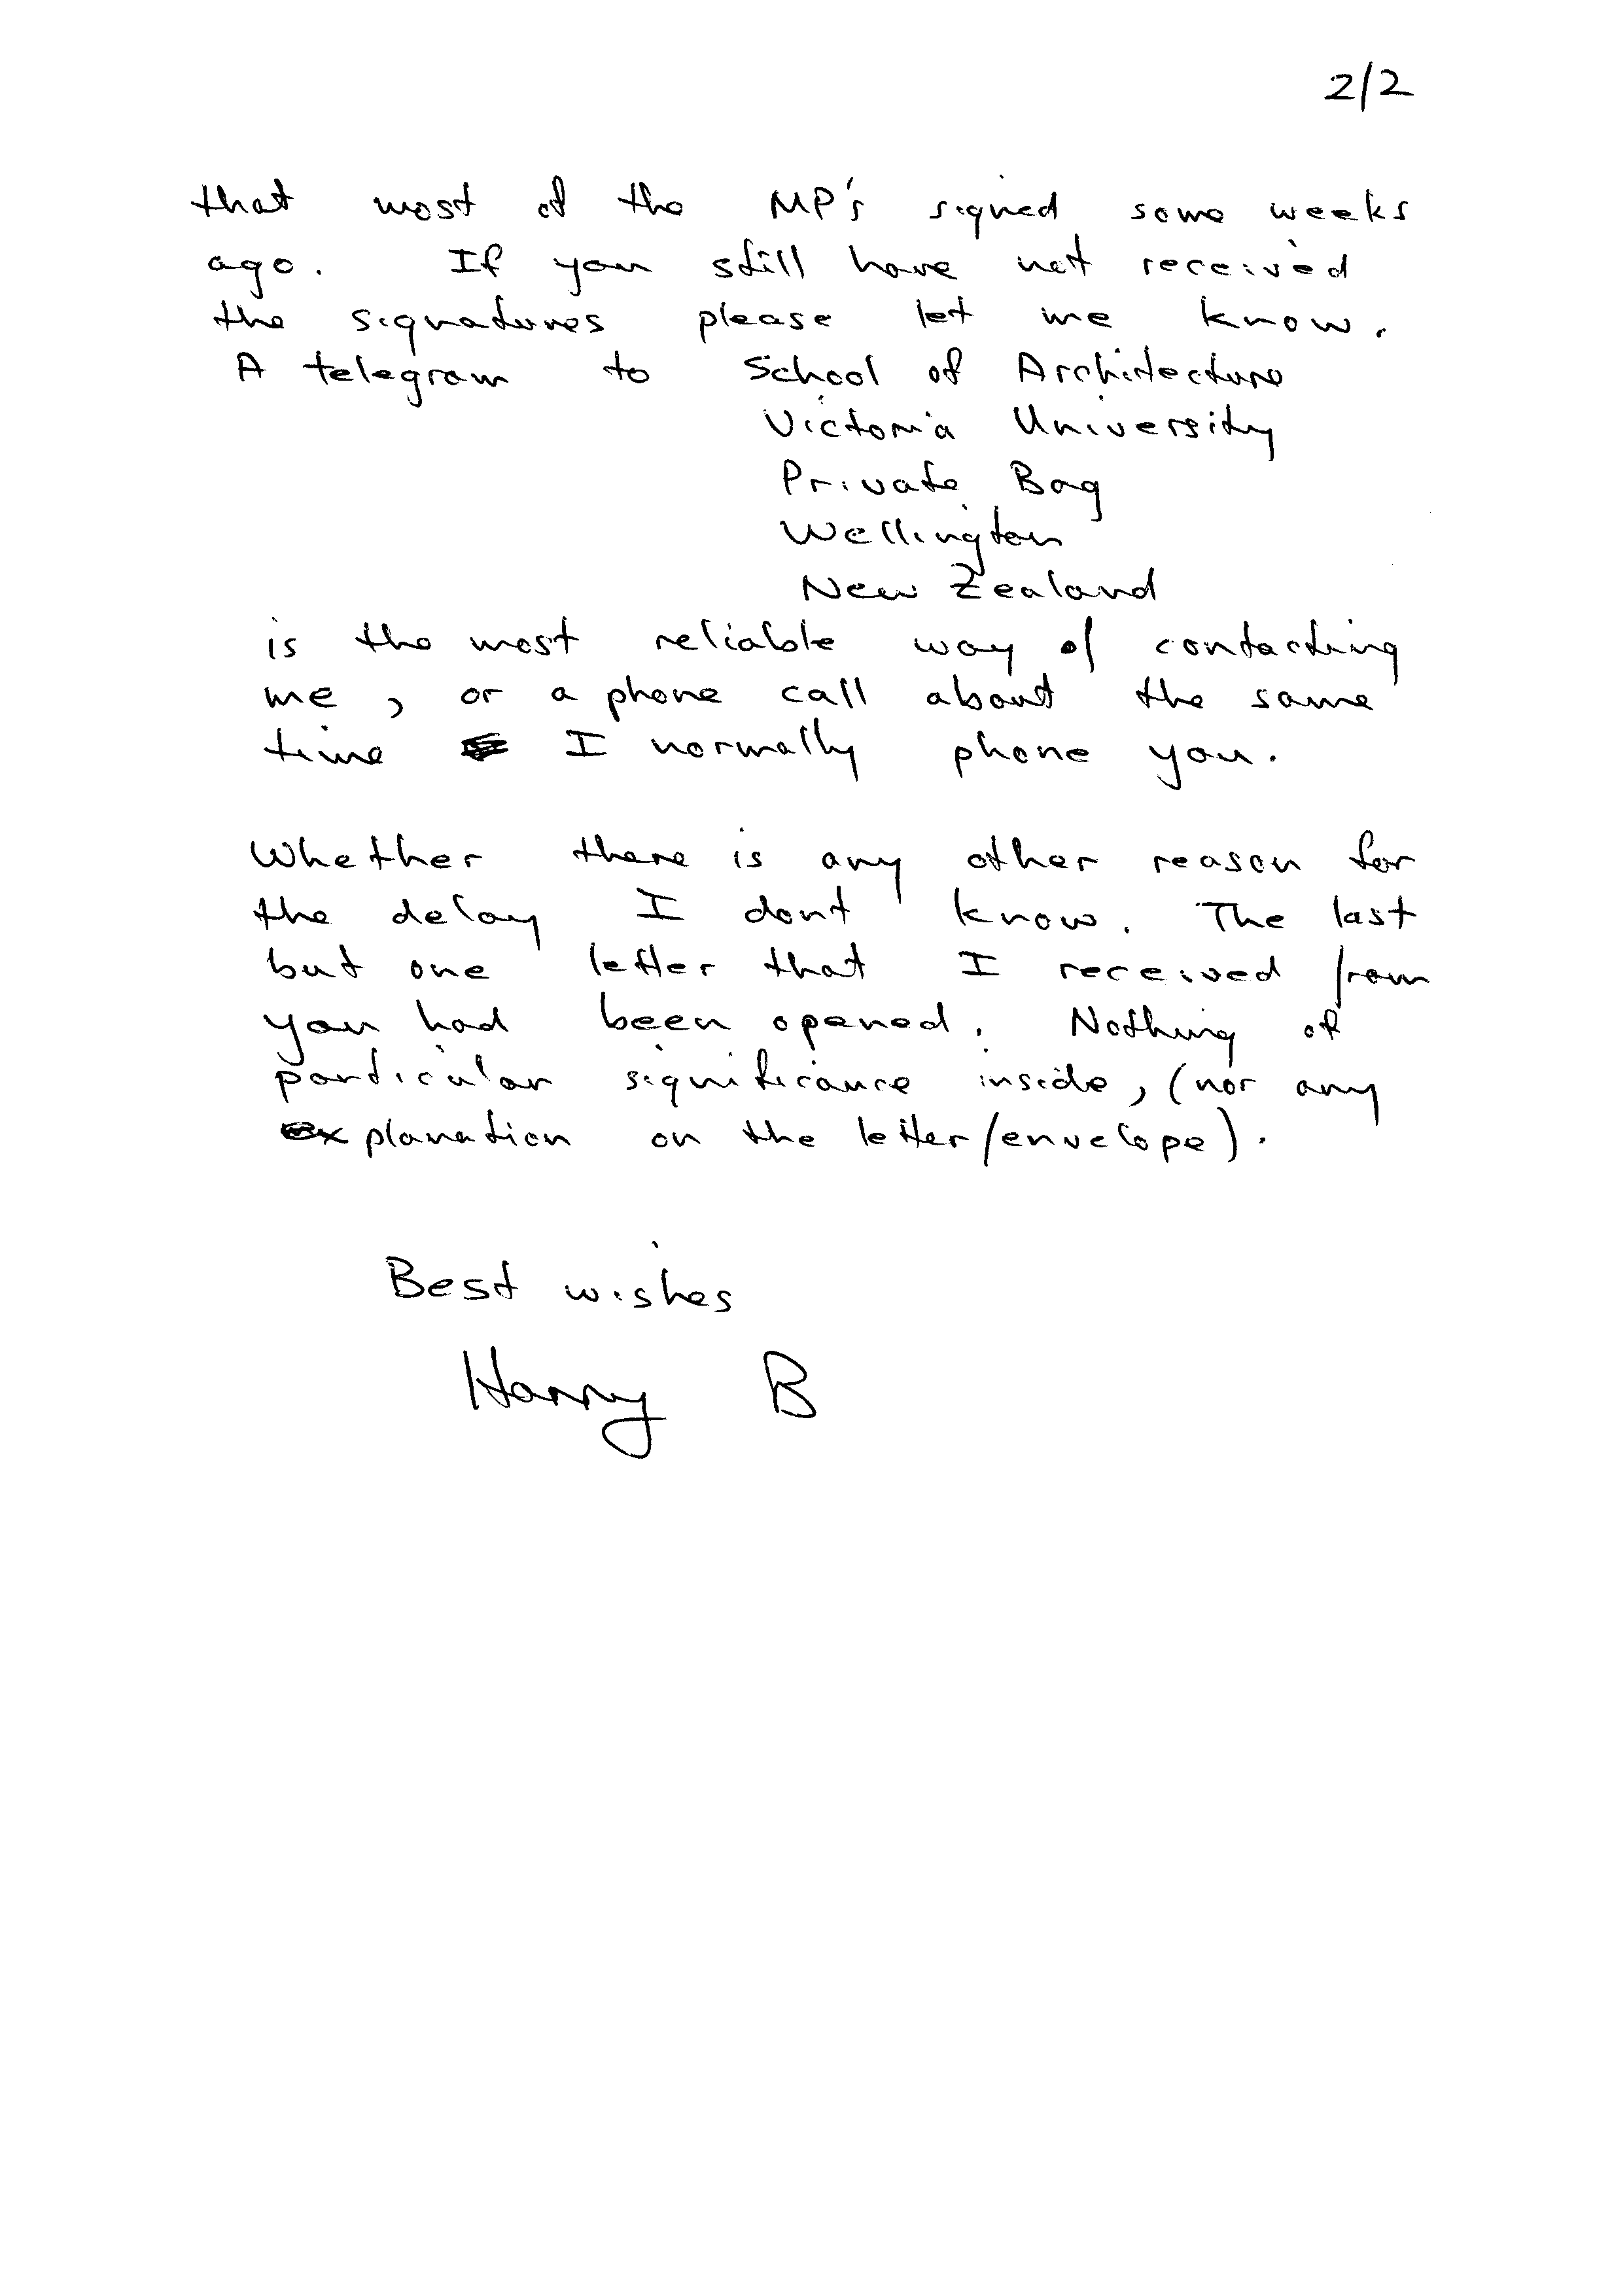 2/2
that most of the MP's signed some weeks
ago. If you still have not received
the signatures please let me know.
A telegram to School of Architecture
Victoria University
Private Bag
Wellington
New Zealand
is the most reliable way of contacting
me, or a phone call about the same
time I normally phone you.
Whether there is any other reason for
the delay I dont know. The last
but one letter that I received from
you had been opened. Nothing of
particular significance inside, (nor any
explanation on the letter/envelope).
Best wishes
Harry B